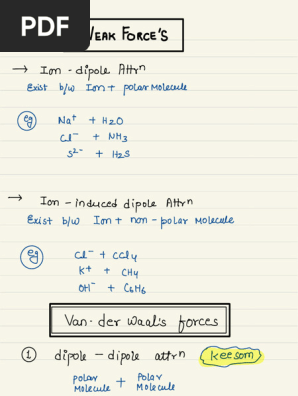 PDF
WEAK FORCE'S
→ Ion - dipole Attrⁿ
Exist b/w Ion + polar Molecule
eg Na⁺ + H₂O
Cl⁻ + NH₃
S²⁻ + H₂S
→ Ion - induced dipole Attrⁿ
Exist b/w Ion + non - polar Molecule
eg Cl⁻ + CCl₄
K⁺ + CH₄
OH⁻ + C₆H₆
Van - der Waal's forces
① dipole - dipole attrⁿ (keesom)
polar Molecule + Polar Molecule